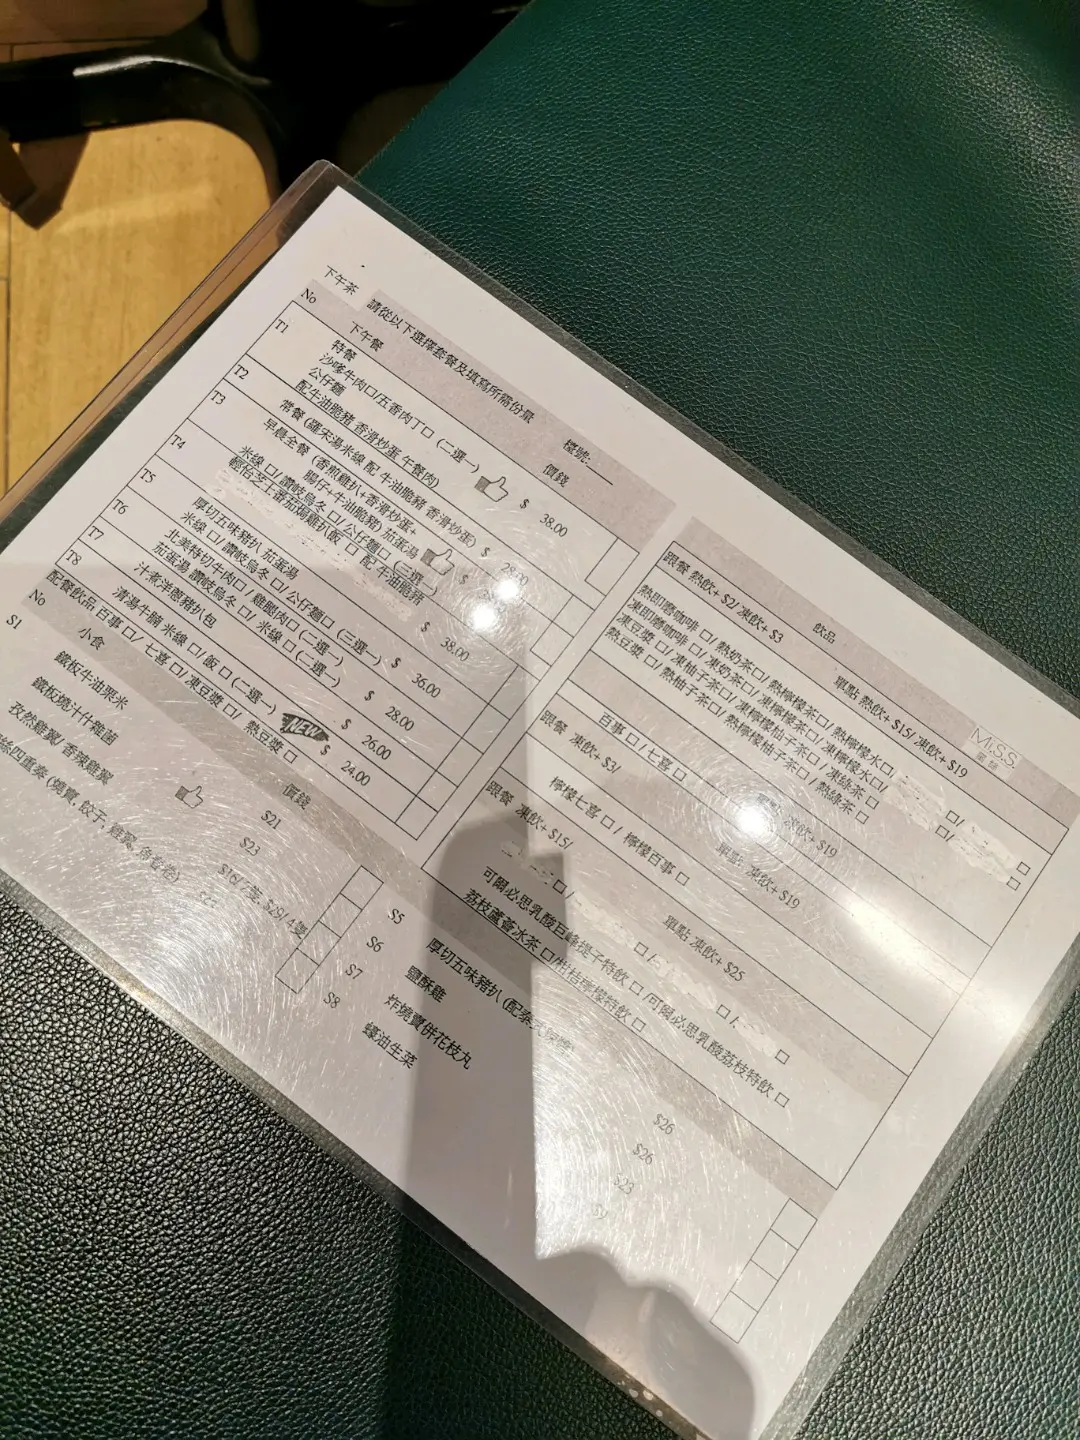 下午茶 請從以下選擇套餐及填寫所需份量 檯號:
No 下午餐 價錢
T1 特餐
沙嗲牛肉□/五香肉丁□ (二選一)
公仔麵
配牛油脆豬 香滑炒蛋 午餐肉) $ 38.00
T2 常餐 (羅宋湯米線 配 牛油脆豬 香滑炒蛋) $ 28.00
T3 早晨全餐 (香煎雞扒+香滑炒蛋+
腸仔+牛油脆豬) 茄蛋湯
米線 □/讚岐烏冬 □/公仔麵□ (三選一) $
T4 焗雞扒飯 □ 配 牛油脆豬 $ 38.00
T5 厚切五味豬扒 茄蛋湯
米線 □/讚岐烏冬 □/公仔麵□ (三選一) $ 36.00
T6 北美特切牛肉□ / 雞腿肉□ (二選一)
茄蛋湯 讚岐烏冬 □/ 米線 □ (二選一) $ 28.00
T7 汁煮洋蔥豬扒包 $ 26.00
T8 清湯牛腩 米線 □/飯 □ (二選一) NEW $ 24.00
配餐飲品 百事 □/ 七喜 □/ 凍豆漿 □/ 熱豆漿 □
飲品
M.S.S.
跟餐 熱飲+ $2/ 凍飲+ $3 單點 熱飲+ $15/ 凍飲+ $19
熱即磨咖啡 □/ 熱奶茶□/ 熱檸檬茶□/ 熱檸檬水□,
凍即磨咖啡 □/ 凍奶茶□/ 凍檸檬茶□/ 凍檸檬水□/
凍豆漿 □/ 凍柚子茶□/ 凍檸檬柚子茶□/ 凍綠茶 □
熱豆漿 □/ 熱柚子茶□/ 熱檸檬柚子茶□/ 熱綠茶 □
百事 □ / 七喜 □ 單點 凍飲+ $19
跟餐 凍飲+ $3/ 單點 凍飲+ $19
檸檬七喜 □ / 檸檬百事 □
跟餐 凍飲+ $15/ 單點 凍飲+ $25
可爾必思乳酸巨峰提子特飲 □ /可爾必思乳酸荔枝特飲 □
荔枝蘆薈冰茶 □/柑桔檸檬特飲 □
No 小食 價錢
S1 鐵板牛油粟米 $21
鐵板燒汁什雜菌 $23
孜然雞翼/ 香辣雞翼 $16/ 2隻, $29/ 4隻
四重奏 (燒賣, 餃子, 雞翼,
S5 厚切五味豬扒 $26
S6 鹽酥雞 $26
S7 炸燒賣併花枝丸 $23
S8 蠔油生菜